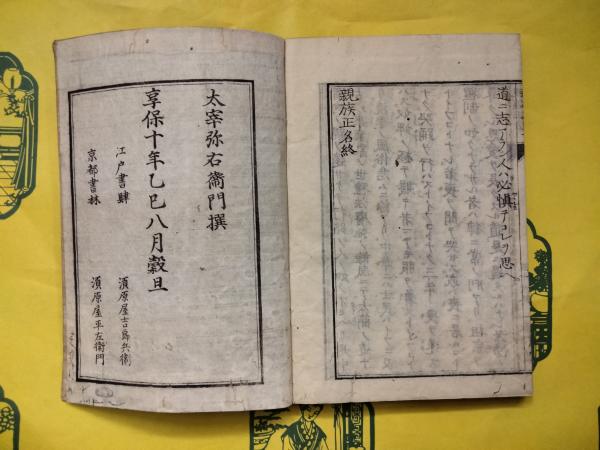 道ニ志アラン人ハ必慎テコレヲ思ヘ
親族正名終
太宰弥右衛門撰
享保十年乙巳八月穀旦
江戸書肆 須原屋吉郎兵衛
京都書林 須原屋平左衛門